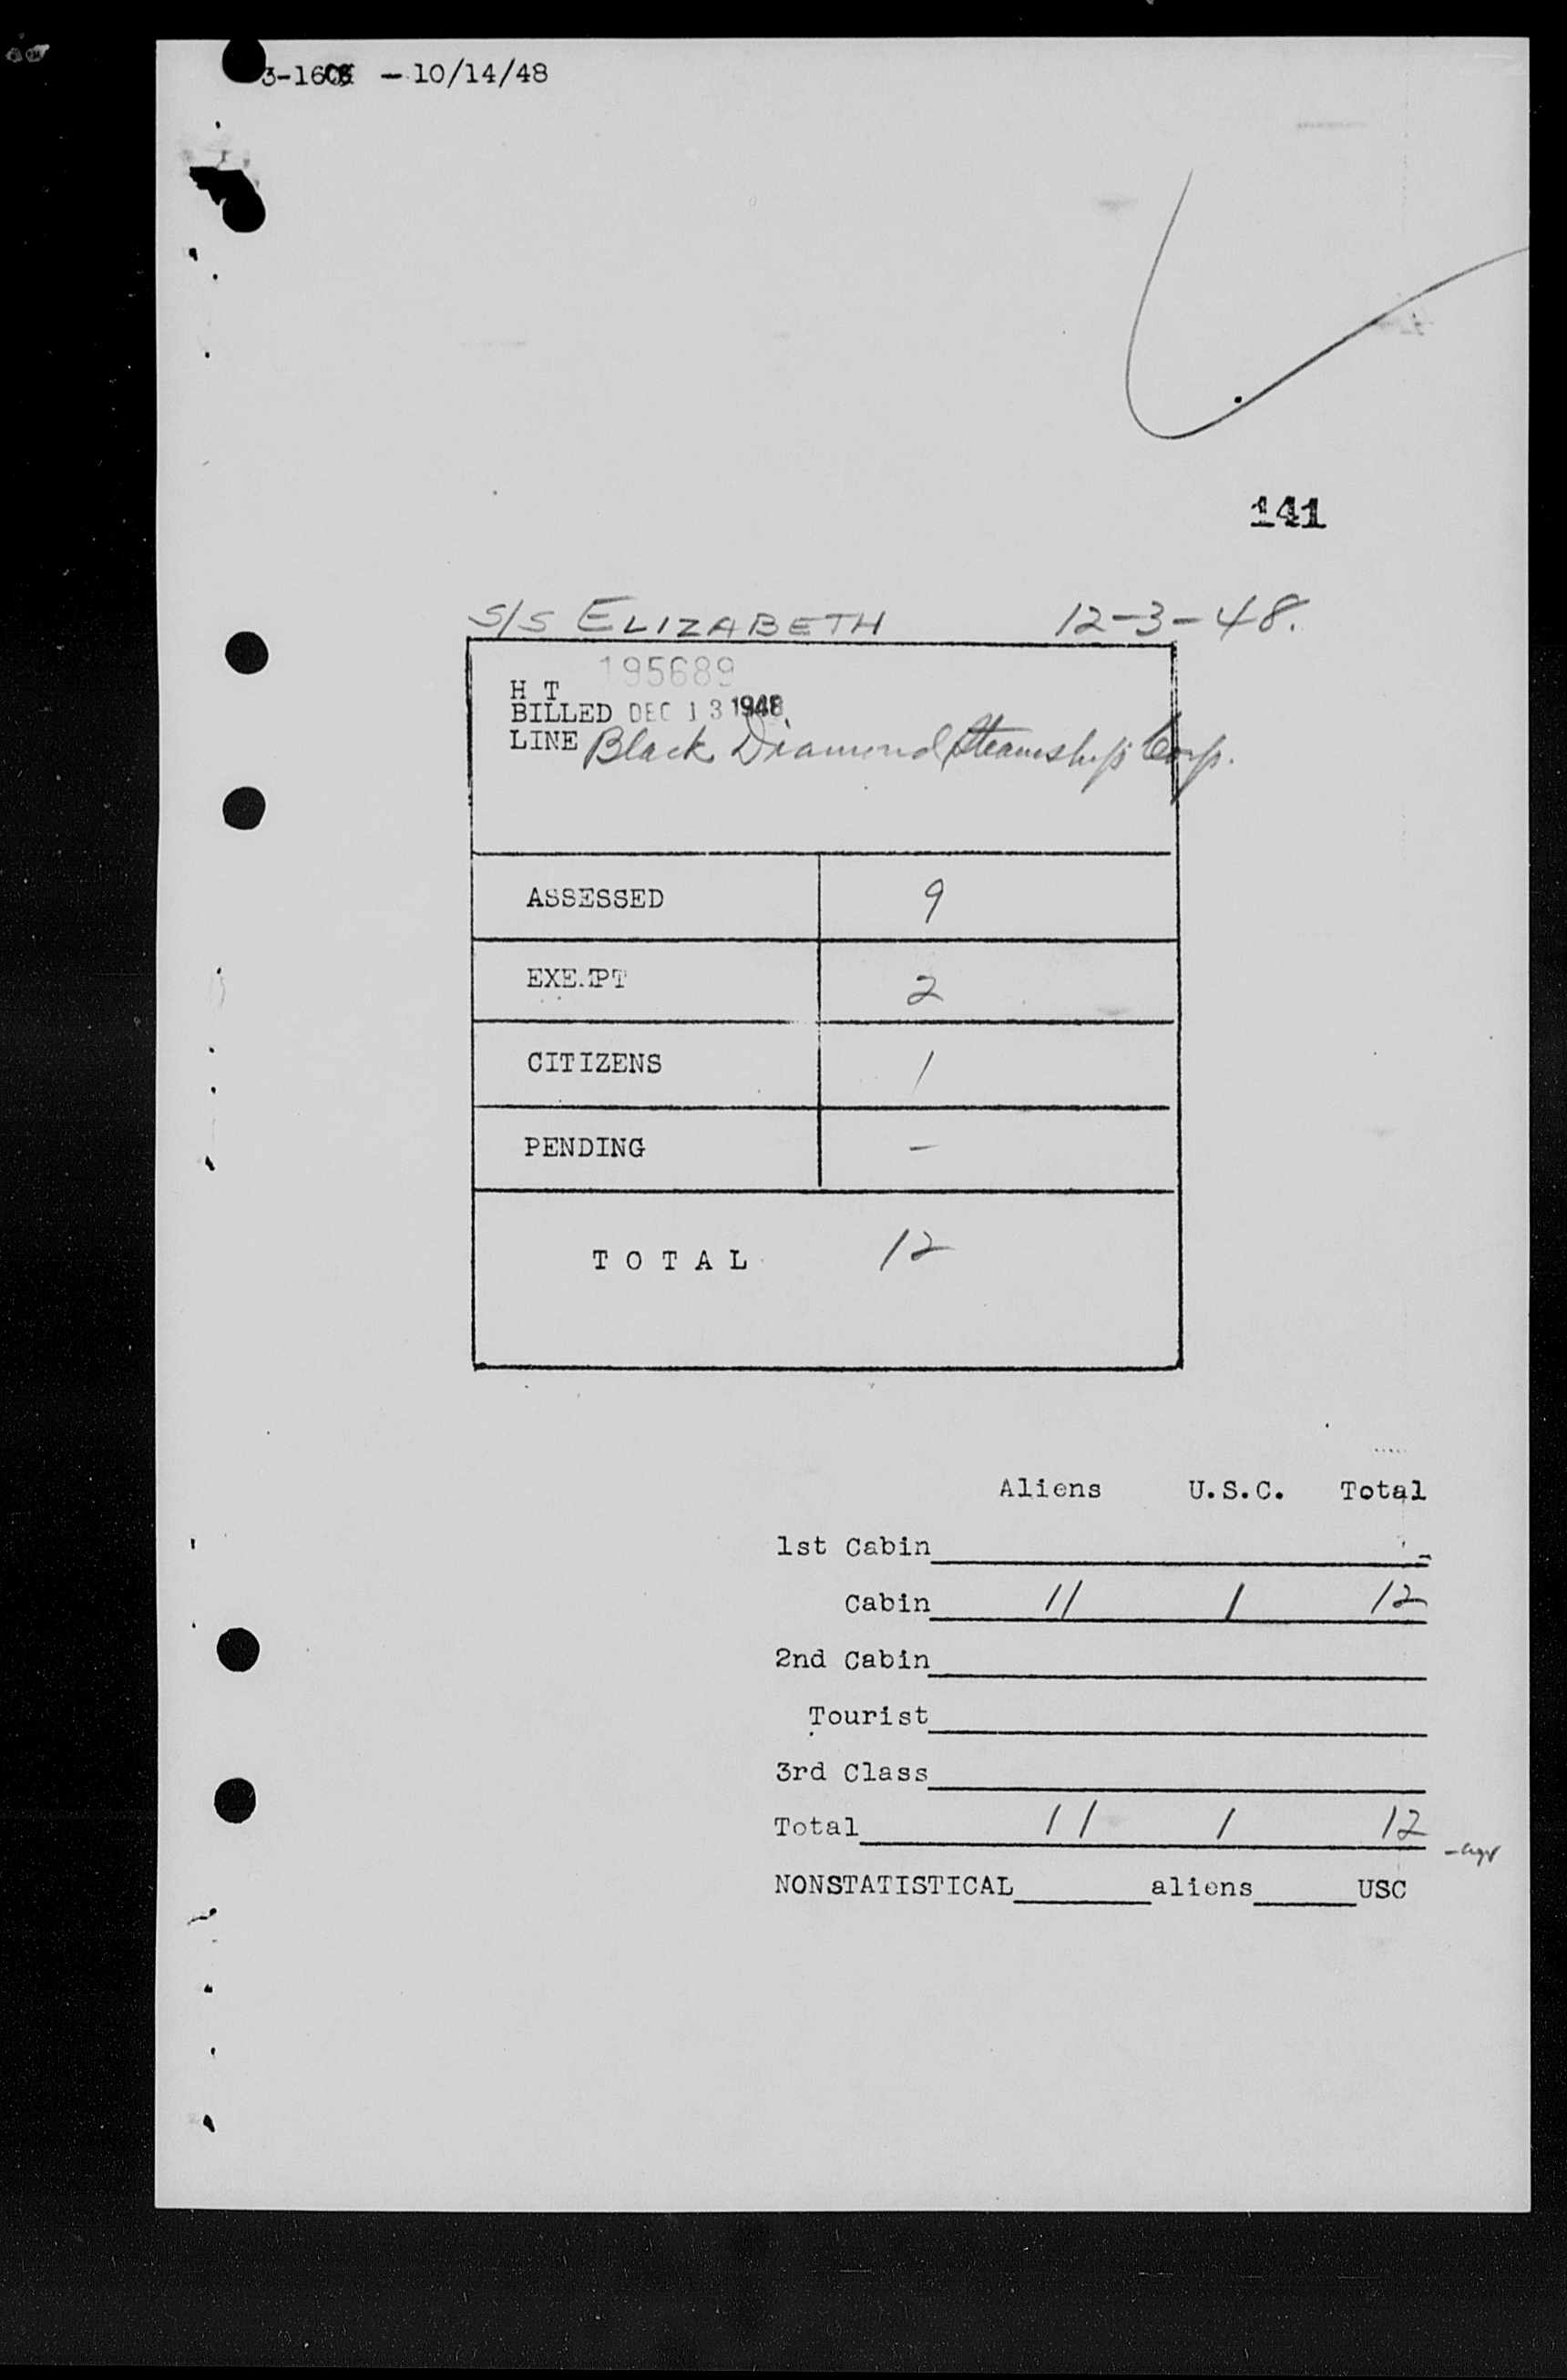 - 10/14/48
141
S/S ELIZABETH 12-3-48.
195689
H T
BILLED DEC 13 1948
LINE Black Diamond Steamship Corp.
ASSESSED 9
EXEMPT 2
CITIZENS 1
PENDING -
T O T A L 12
Aliens U.S.C. Total
1st Cabin -
Cabin 11 1 12
2nd Cabin
Tourist
3rd Class
Total 11 1 12
NONSTATISTICAL aliens USC